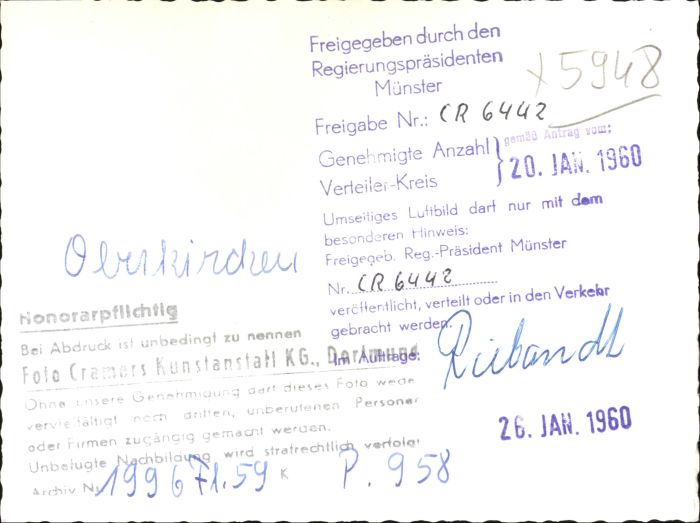 Freigegeben durch den
Regierungspräsidenten
Münster
x5948
Freigabe Nr.: CR 6442
Genehmigte Anzahl
Verteiler-Kreis
gemäß Antrag vom:
20. JAN. 1960
Umseitiges Luftbild darf nur mit dem
besonderen Hinweis:
Freigegeb. Reg.-Präsident Münster
Nr. CR 6442
veröffentlicht, verteilt oder in den Verkehr
gebracht werden.
Im Auftrage:
26. JAN. 1960
Oberkirchen
Honorarpflichtig
Bei Abdruck ist unbedingt zu nennen
Foto Cramers Kunstanstalt KG., Dortmund
Ohne unsere Genehmigung darf dieses Foto wede
vervielfältigt noch dritten, unberufenen Personen
oder Firmen zugängig gemacht werden.
Unbefugte Nachbildung wird strafrechtlich verfolgt
Archiv Nr. 1996 71.59 K P. 958